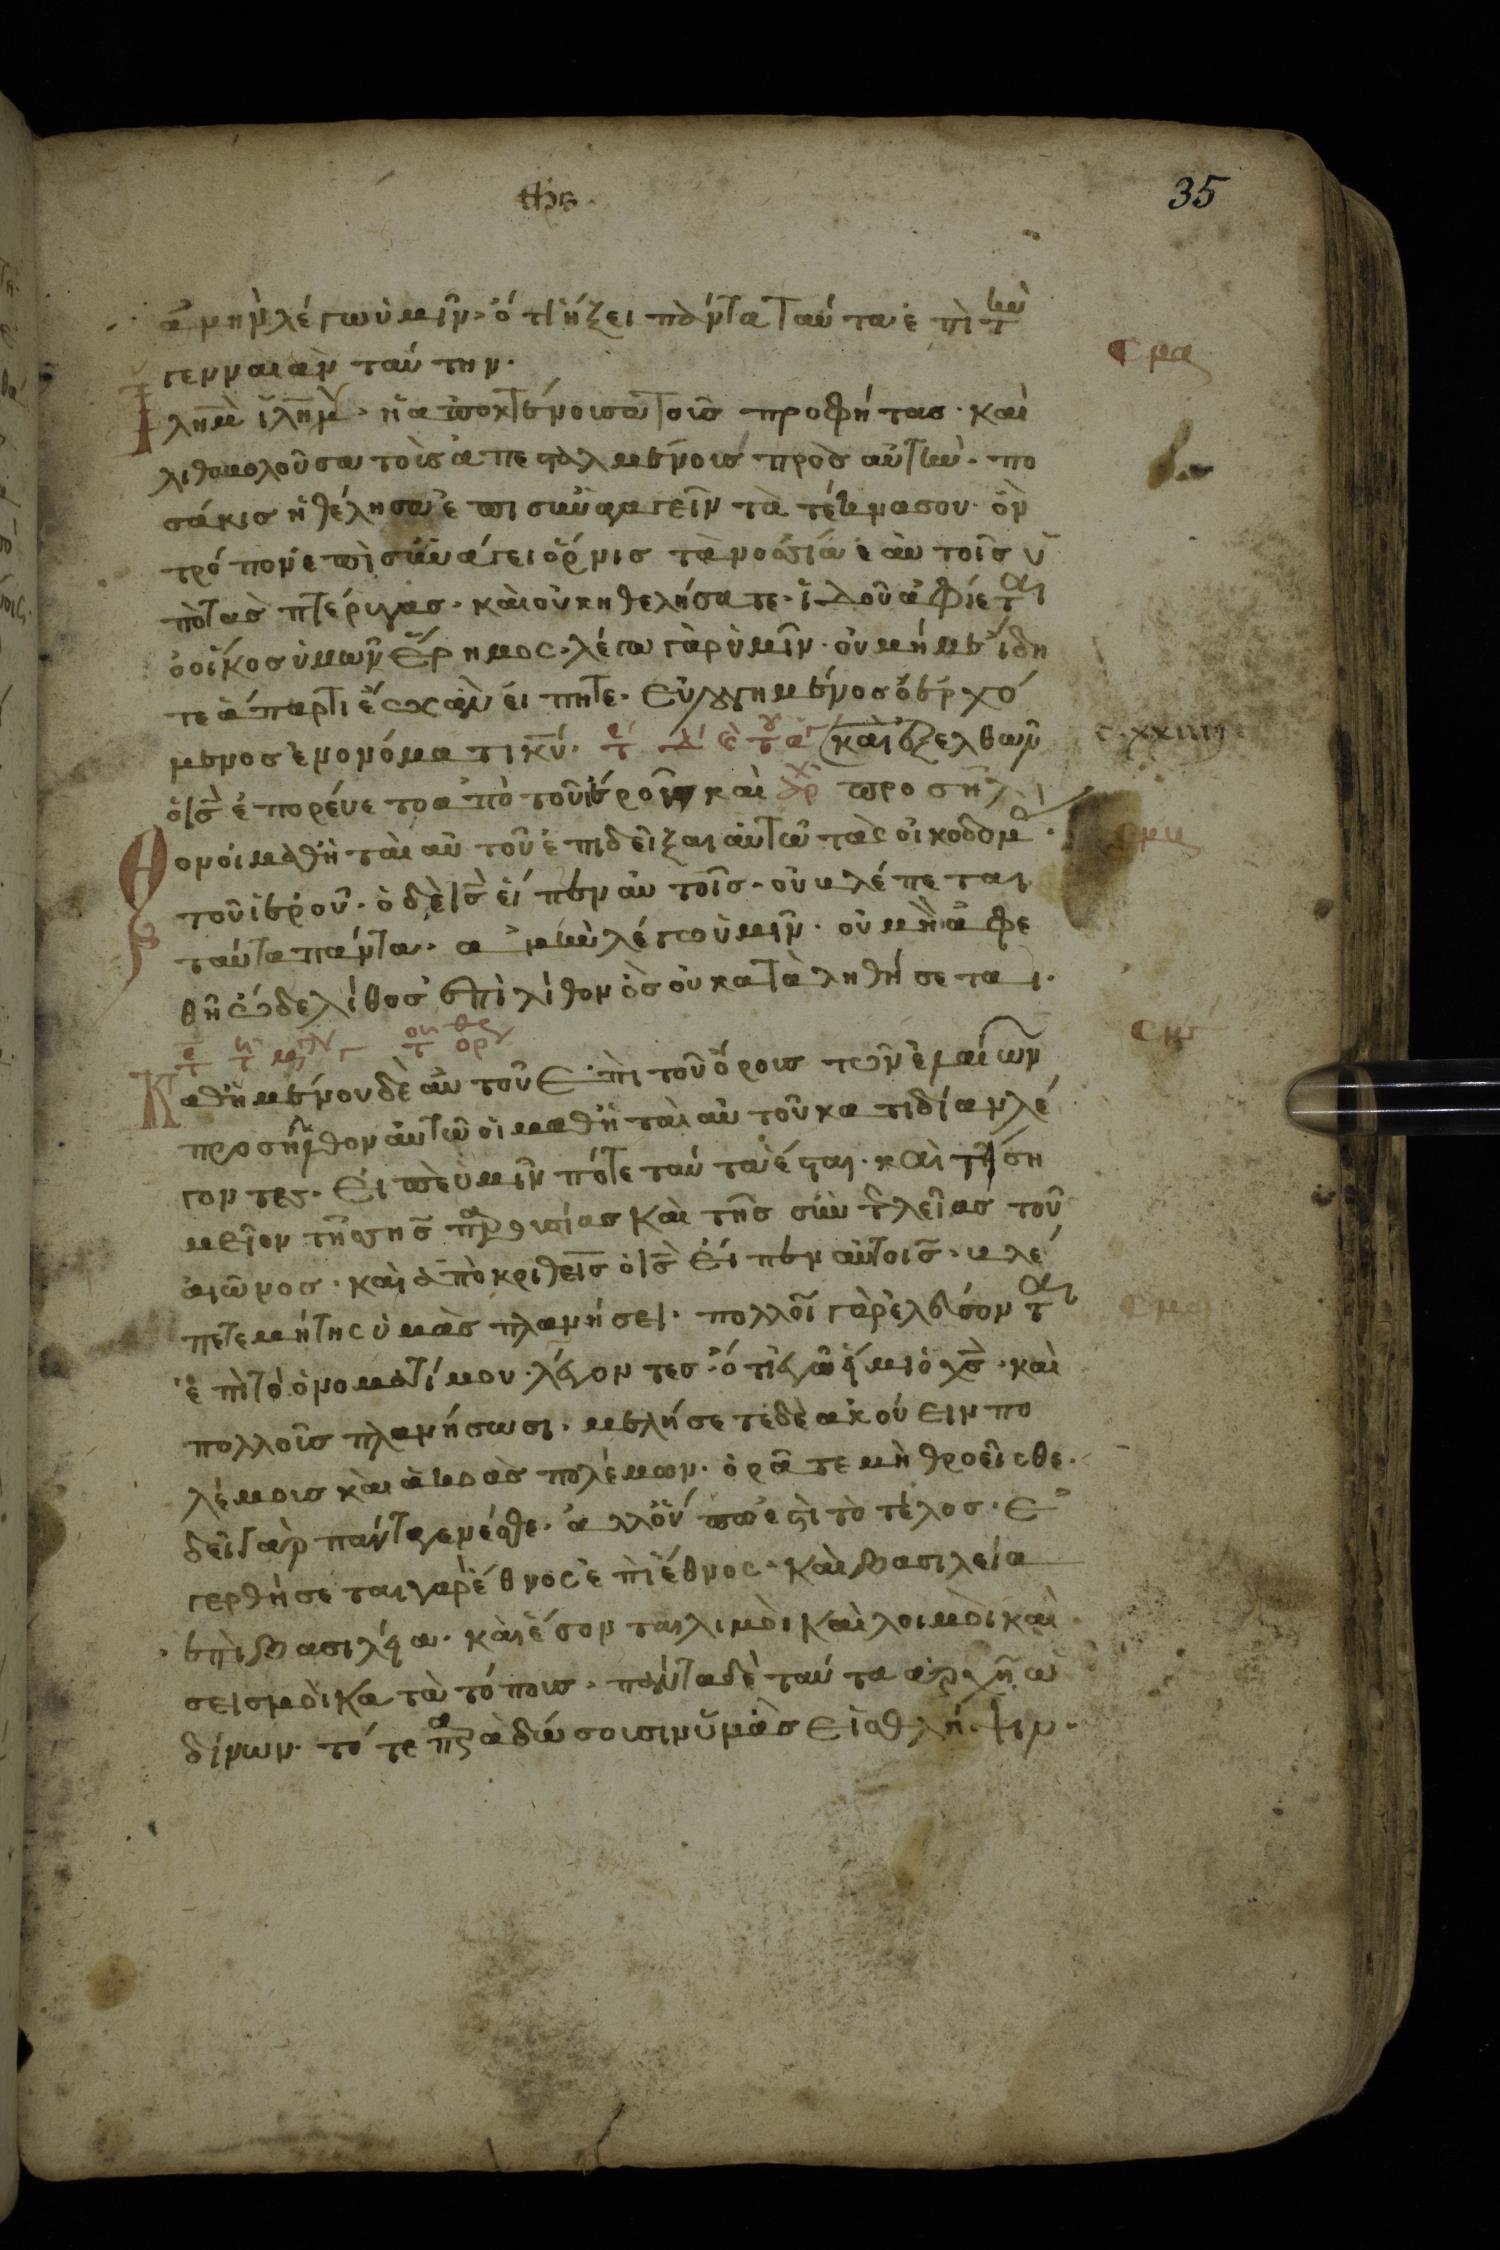 35
ἀμὴν λέγω ὑμῖν· ὅτι ἥξει πάντα ταῦτα ἐπὶ τὴν
γεννεὰν ταύτην.
Ἰλημ ἰλημ· ἡ ἀποκτένουσα τοὺς προφήτας· καὶ
λιθοβολοῦσα τοὺς ἀπεσταλμένους πρὸς αὐτὴν· πο
σάκις ἠθέλησα ἐπισυναγαγεῖν τὰ τέκνα σου· ὃν
τρόπον ἐπισυνάγει ὄρνις τὰ νοσσία ἑαυτοῖς ὑ
πὸ τὰς πτέριγας· καὶ οὐκ ἠθελήσατε· ἰδοῦ ἀφίεται
ὁ οἶκος ὑμῶν ἔρημος· λέγω γὰρ ὑμῖν· οὐ μή με ἴδη
τε ἀπάρτι ἕως ἂν εἴπητε· Εὐλογημένος ὁ ἐρχό
μενος ἐν ὀνόματι κυ· καὶ ἐξελθὼν
ὁ ις ἐπορεύετο ἀπὸ τοῦ ἱεροῦ καὶ προσῆλ
θον οἱ μαθηταὶ αὐτοῦ ἐπιδεῖξαι αὐτῶ τὰς οἰκοδομὰς
τοῦ ἱεροῦ· ὁ δὲ ις εἶπεν αὐτοῖς· οὐ βλέπεται
ταῦτα πάντα· ἀμὴν λέγω ὑμῖν· οὐ μὴ ἀφε
θῆ ὧδε λίθος ἐπὶ λίθον ὃς οὐ καταληθήσεται·
Καθημένου δὲ αὐτοῦ ἐπὶ τοῦ ὄρους τῶν ἐλαιῶν
προσῆλθον αὐτῶ οἱ μαθηταὶ αὐτοῦ κατιδίαν λέ
γοντες· Εἰπὲ ὑμῖν πότε ταῦτα ἔσται· καὶ τί τὸ ση
μεῖον τῆς σῆς παρουσίας καὶ τῆς συντελείας τοῦ
αἰῶνος· καὶ ἀποκριθεὶς ὁ ις εἶπεν αὐτοῖς· βλέ
πετε μήτης ὑμᾶς πλανήσει· πολλοὶ γὰρ ἐλεύσονται
ἐπὶ τὸ ὀνόματί μου λέγοντες· ὅτι ἐγώ εἰμι ὁ χς· καὶ
πολλοὺς πλανήσωσι· μελήσετε δὲ ἀκούειν πο
λέμους καὶ ἀκοὰς πολέμων· ὁρᾶτε μὴ θροεῖσθε·
δεῖ γὰρ πάντα γενέσθαι· ἀλλ' οὔπω ἐστὶ τὸ τέλος· ἐ
γερθήσεται γὰρ ἔθνος ἐπὶ ἔθνος· καὶ βασιλεία
ἐπὶ βασιλεία· καὶ ἔσονται λιμοὶ καὶ λοιμοὶ καὶ
σεισμοὶ κατὰ τόπους· πάντα δὲ ταῦτα ἀρχὴ ὠ
δίνων· τότε παραδώσουσιν ὑμᾶς εἰς θλήψιν·